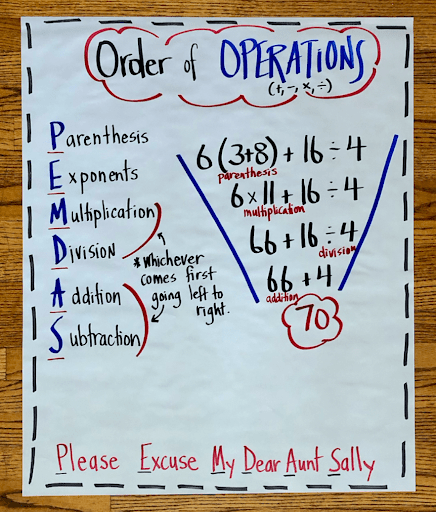 Order of OPERATIONS
(+, -, x, ÷)
Parenthesis
Exponents
Multiplication
Division
Addition
Subtraction
*Whichever
comes first
going left to
right.
6 (3+8) + 16 ÷ 4
parenthesis
6 x 11 + 16 ÷ 4
multiplication
66 + 16 ÷ 4
division
66 + 4
addition
70
Please Excuse My Dear Aunt Sally